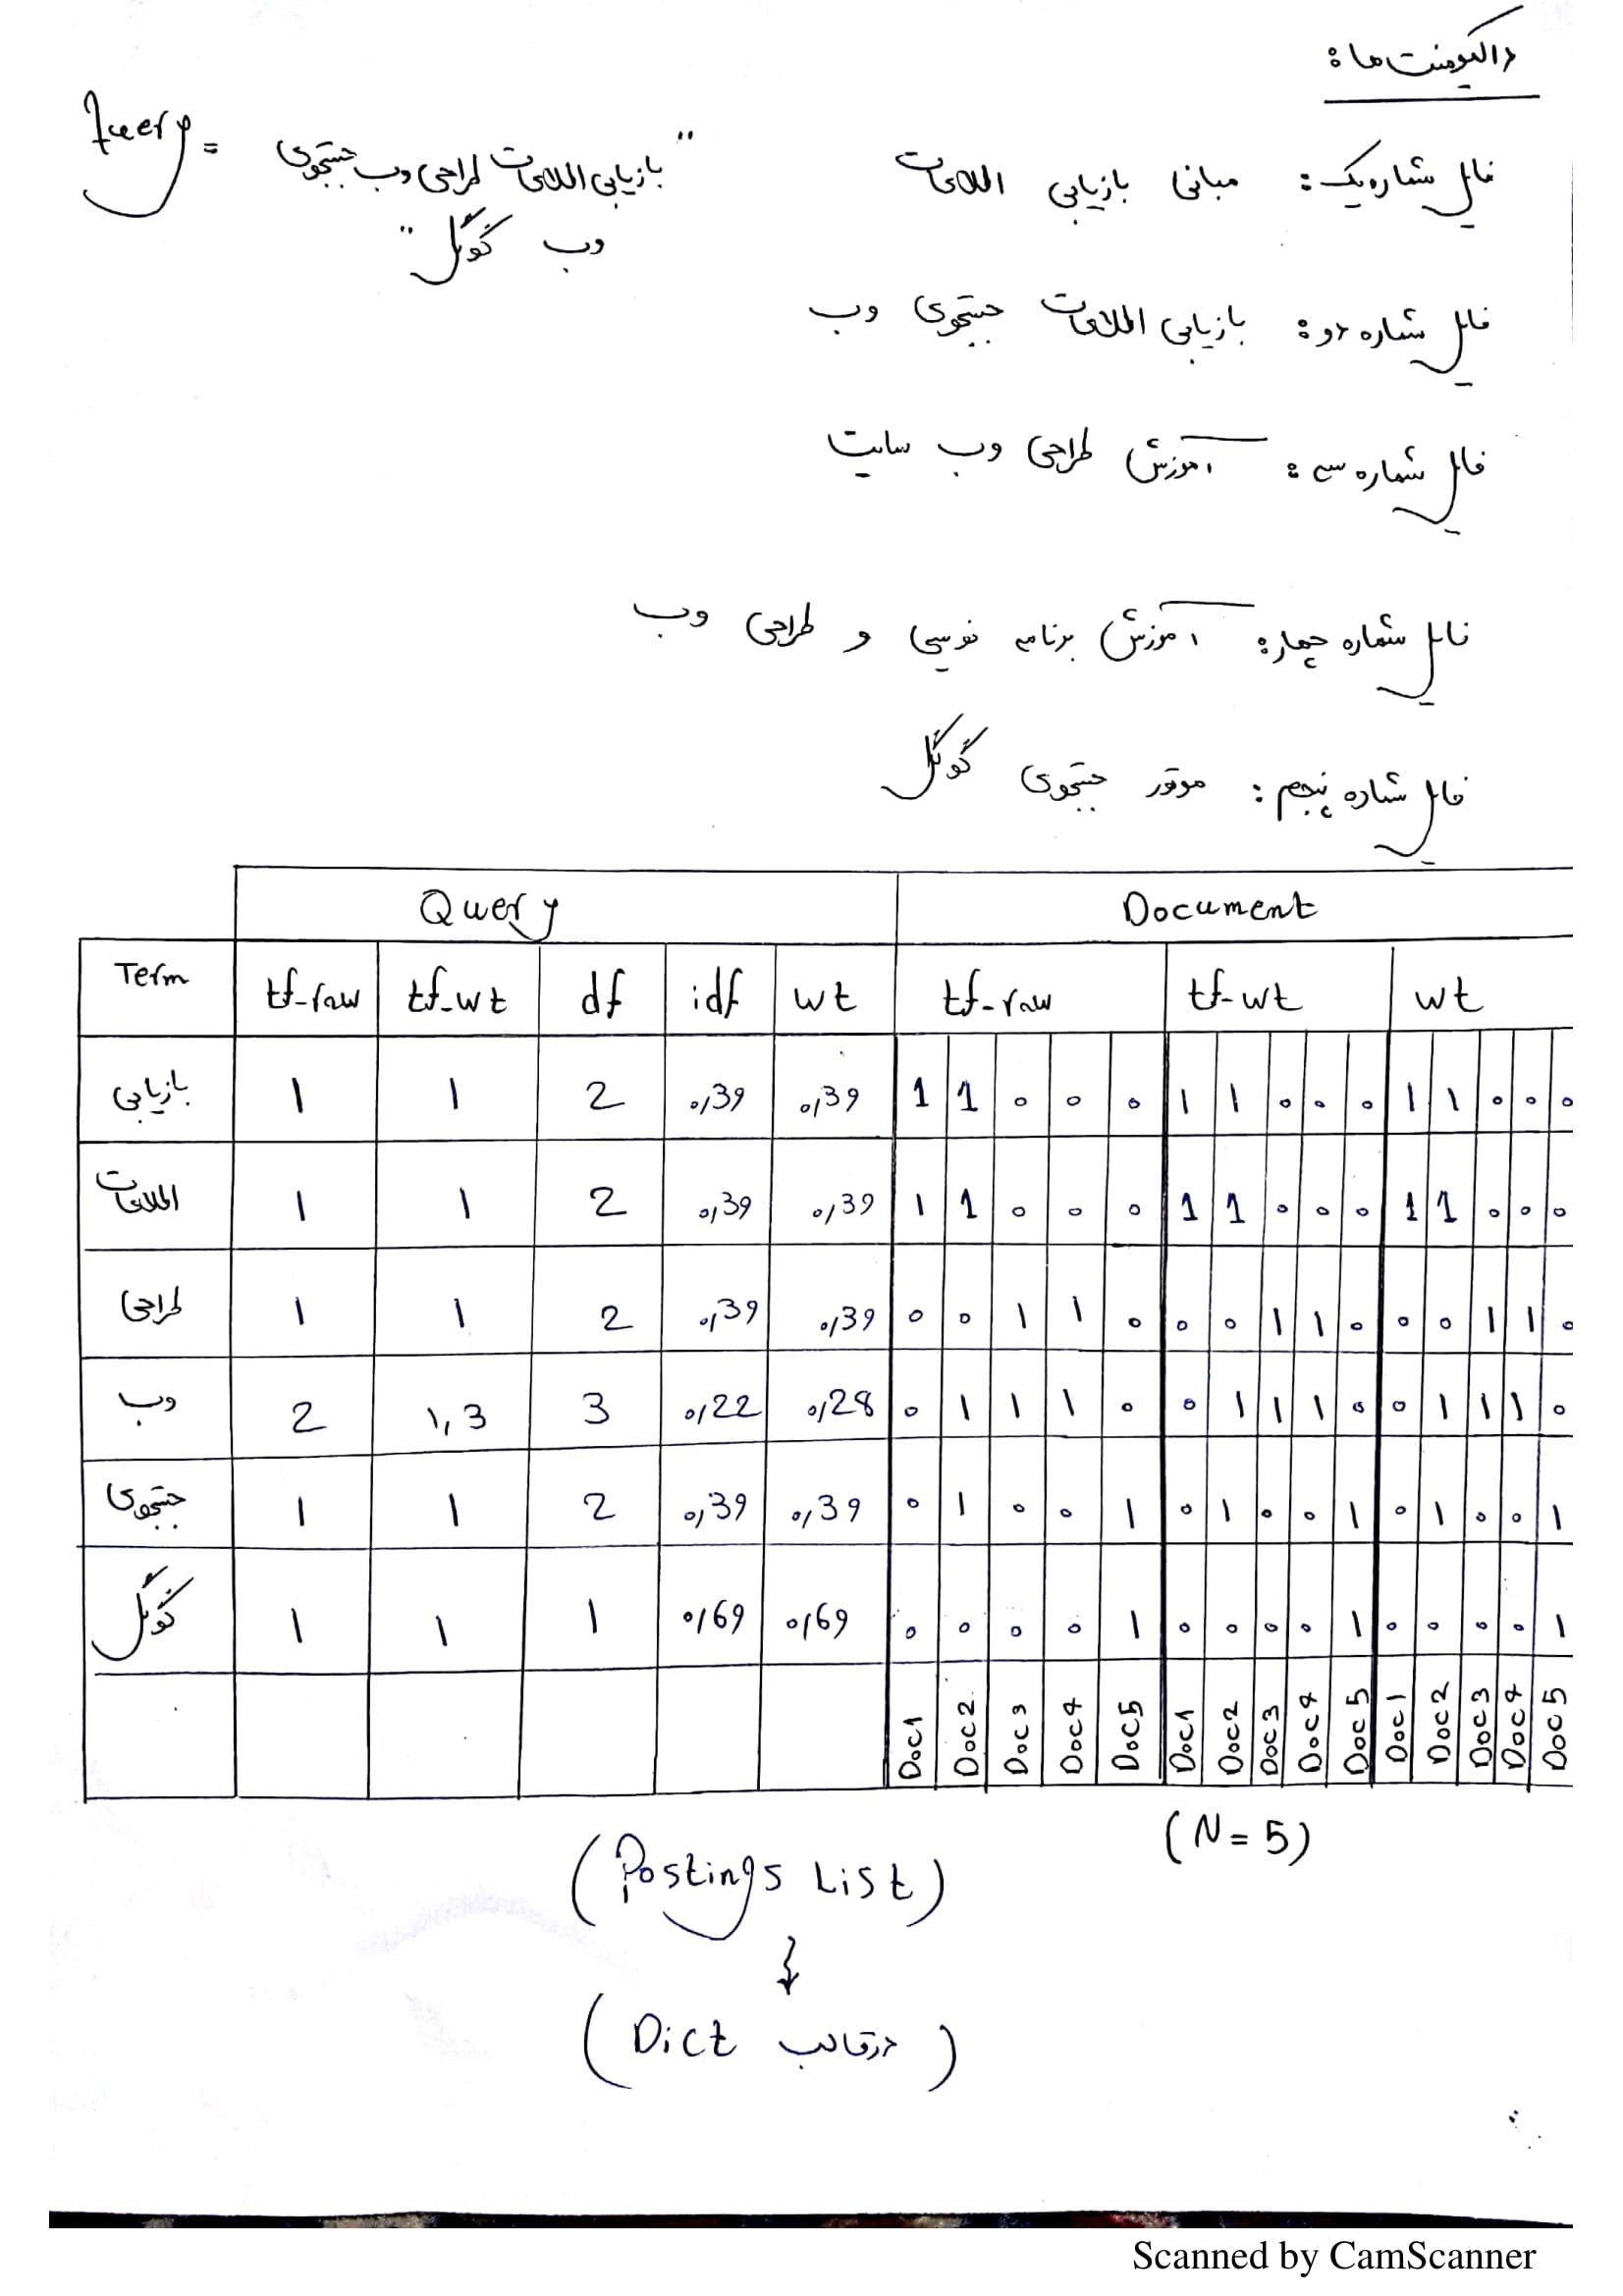 داکیومنت ها:
Query = "بازیابی اطلاعات طراحی وب جستجوی
وب گوگل"
فایل شماره یک: مبانی بازیابی اطلاعات
فایل شماره دو: بازیابی اطلاعات جستجوی وب
فایل شماره سه: آموزش طراحی وب سایت
فایل شماره چهار: آموزش برنامه نویسی و طراحی وب
فایل شماره پنجم: موتور جستجوی گوگل
Query Document
Term tf-raw tf-wt df idf wt tf-raw tf-wt wt
بازیابی 1 1 2 0,39 0,39 1 1 0 0 0 1 1 0 0 0 1 1 0 0 0
اطلاعات 1 1 2 0,39 0,39 1 1 0 0 0 1 1 0 0 0 1 1 0 0 0
طراحی 1 1 2 0,39 0,39 0 0 1 1 0 0 0 1 1 0 0 0 1 1 0
وب 2 1,3 3 0,22 0,28 0 1 1 1 0 0 1 1 1 0 0 1 1 1 0
جستجوی 1 1 2 0,39 0,39 0 1 0 0 1 0 1 0 0 1 0 1 0 0 1
گوگل 1 1 1 0,69 0,69 0 0 0 0 1 0 0 0 0 1 0 0 0 0 1
Doc1 Doc2 Doc3 Doc4 Doc5 Doc1 Doc2 Doc3 Doc4 Doc5 Doc1 Doc2 Doc3 Doc4 Doc5
(N = 5)
(Postings List)
(درقالب Dict)
Scanned by CamScanner